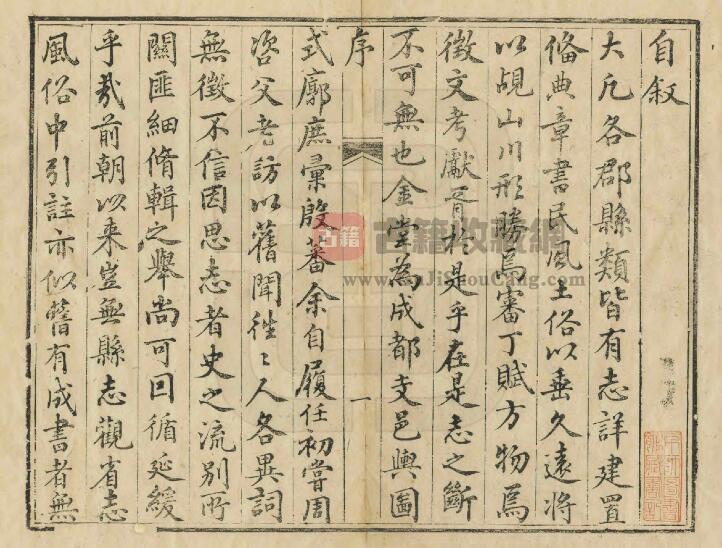 自叙
大凡各郡縣類皆有志詳建置
偹典章書民風土俗以垂久遠將
以覘山川形勝焉審丁賦方物焉
徵文考獻胥於是乎在是志之斷
不可無也金堂為成都支邑輿圖
序 一
式廓庶彙殷蕃余自履任初嘗周
咨父老訪以舊聞徃〻人各異詞
無徵不信因思志者史之流別所
關匪細脩輯之舉尚可囙循延緩
乎哉前朝以来豈無縣志觀省志
風俗中引註亦似舊有成書者無
古籍
古籍收藏網